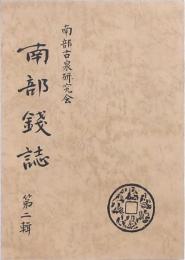 南部古泉研究会
南部錢誌
第二輯